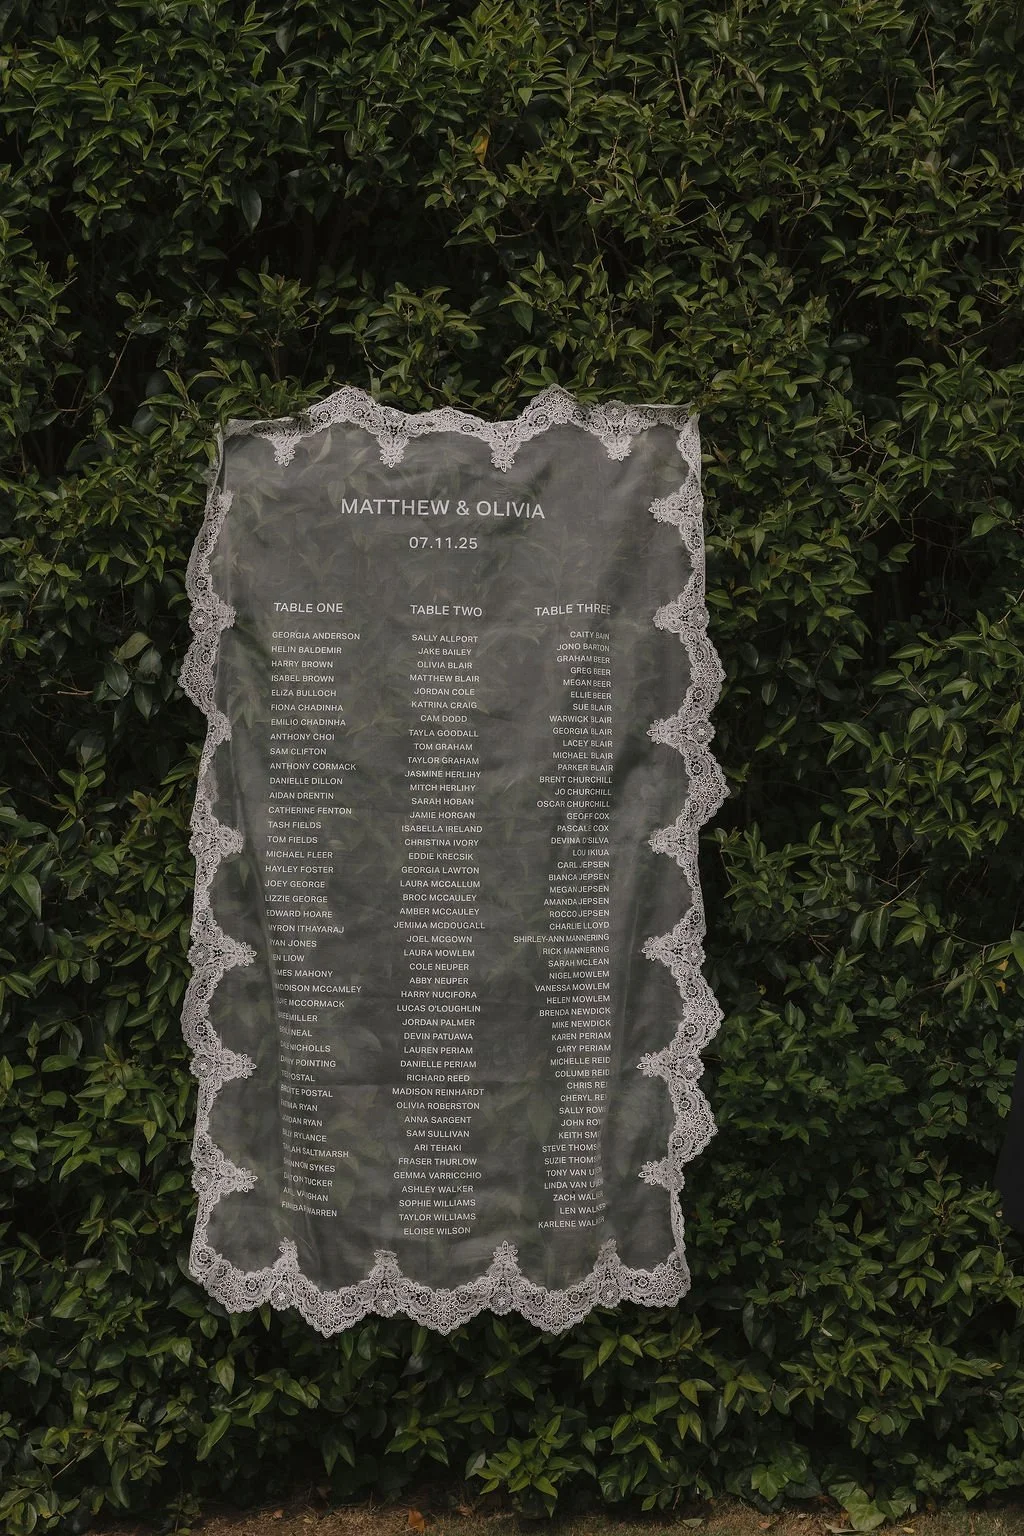 MATTHEW & OLIVIA
07.11.25
TABLE ONE
GEORGIA ANDERSON
HELIN BALDEMIR
HARRY BROWN
ISABEL BROWN
ELIZA BULLOCH
FIONA CHADINHA
EMILIO CHADINHA
ANTHONY CHOI
SAM CLIFTON
ANTHONY CORMACK
DANIELLE DILLON
AIDAN DRENTIN
CATHERINE FENTON
TASH FIELDS
TOM FIELDS
MICHAEL FLEER
HAYLEY FOSTER
JOEY GEORGE
LIZZIE GEORGE
EDWARD HOARE
MYRON ITHAYARAJ
JONES
LIOW
MAHONY
MADDISON MCCAMLEY
MCCORMACK
MILLER
NEAL
NICHOLLS
POINTING
POSTAL
POSTAL
RYAN
RYAN
RYLANCE
SALTMARSH
SHANNON SYKES
TUCKER
VAUGHAN
WARREN
TABLE TWO
SALLY ALLPORT
JAKE BAILEY
OLIVIA BLAIR
MATTHEW BLAIR
JORDAN COLE
KATRINA CRAIG
CAM DODD
TAYLA GOODALL
TOM GRAHAM
TAYLOR GRAHAM
JASMINE HERLIHY
MITCH HERLIHY
SARAH HOBAN
JAMIE HORGAN
ISABELLA IRELAND
CHRISTINA IVORY
EDDIE KRECSIK
GEORGIA LAWTON
LAURA MCCALLUM
BROC MCCAULEY
AMBER MCCAULEY
JEMIMA MCDOUGALL
JOEL MCGOWN
LAURA MOWLEM
COLE NEUPER
ABBY NEUPER
HARRY NUCIFORA
LUCAS O'LOUGHLIN
JORDAN PALMER
DEVIN PATUAWA
LAUREN PERIAM
DANIELLE PERIAM
RICHARD REED
MADISON REINHARDT
OLIVIA ROBERSTON
ANNA SARGENT
SAM SULLIVAN
ARI TEHAKI
FRASER THURLOW
GEMMA VARRICCHIO
ASHLEY WALKER
SOPHIE WILLIAMS
TAYLOR WILLIAMS
ELOISE WILSON
TABLE THREE
CAITY BAIN
JONO BARTON
GRAHAM BEER
GREG BEER
MEGAN BEER
ELLIE BEER
SUE BLAIR
WARWICK BLAIR
GEORGIA BLAIR
LACEY BLAIR
MICHAEL BLAIR
PARKER BLAIR
BRENT CHURCHILL
JO CHURCHILL
OSCAR CHURCHILL
GEOFF COX
PASCALE COX
DEVINA D'SILVA
LOU IKIUA
CARL JEPSEN
BIANCA JEPSEN
MEGAN JEPSEN
AMANDA JEPSEN
ROCCO JEPSEN
CHARLIE LLOYD
SHIRLEY-ANN MANNERING
RICK MANNERING
SARAH MCLEAN
NIGEL MOWLEM
VANESSA MOWLEM
HELEN MOWLEM
BRENDA NEWDICK
MIKE NEWDICK
KAREN PERIAM
GARY PERIAM
MICHELLE REID
COLUMB REID
CHRIS
CHERYL
SALLY
JOHN
KEITH
STEVE
SUZIE
TONY VAN
LINDA VAN
ZACH WALKER
LEN WALKER
KARLENE WALKER